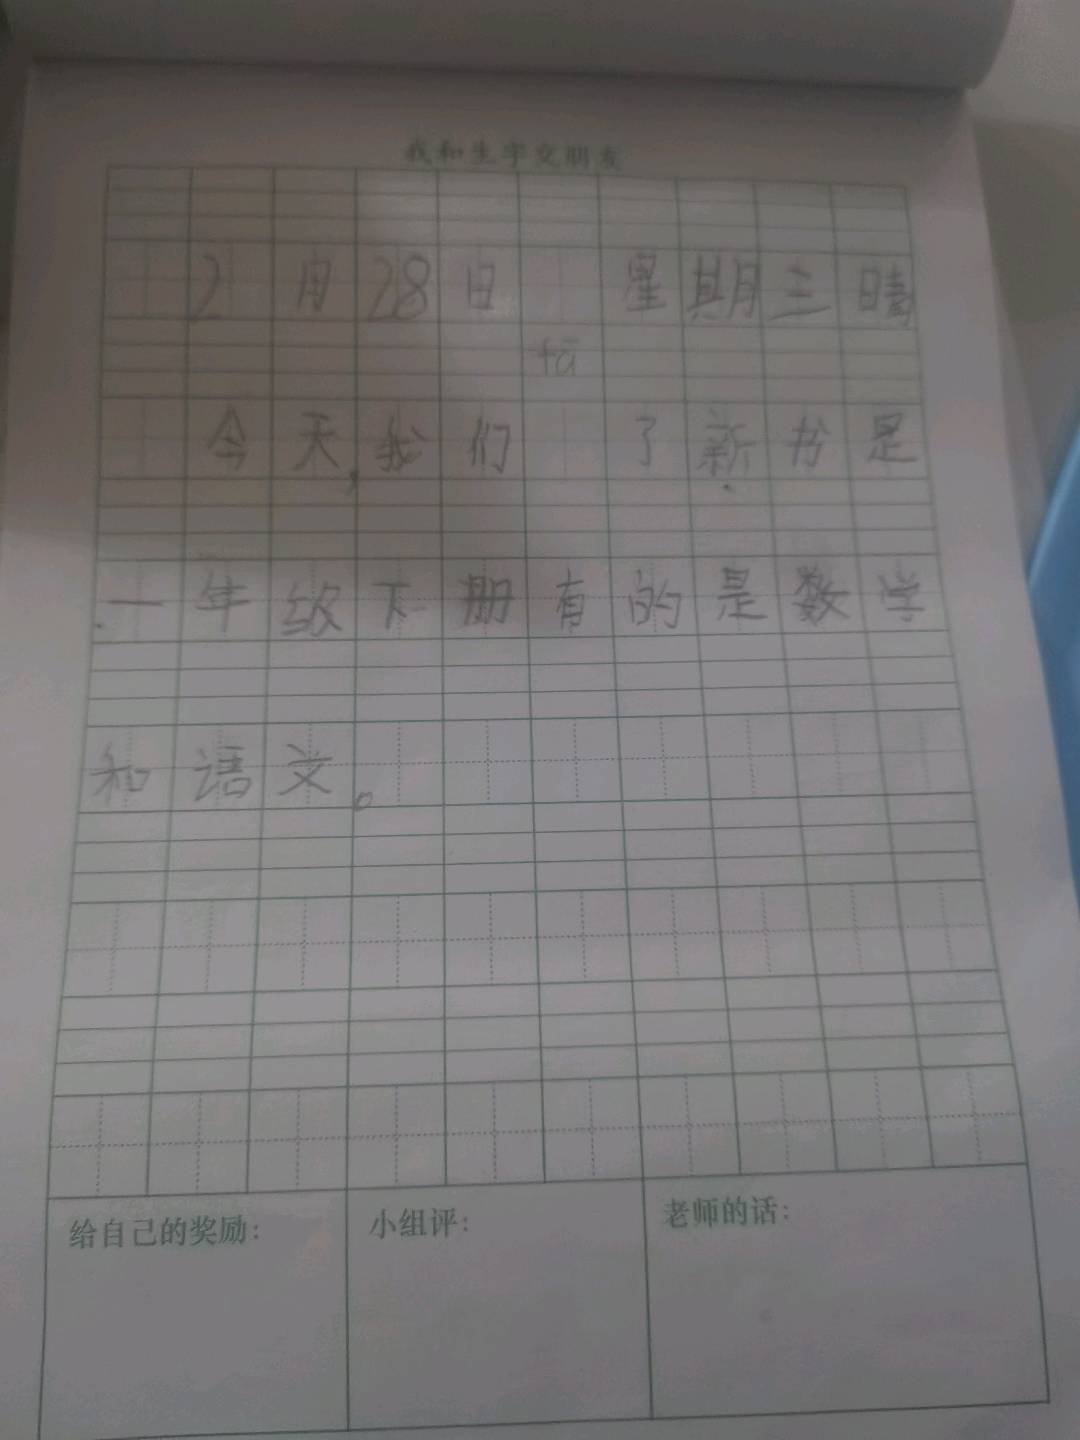 我和生字交朋友
2月28日 星期三晴
fā
今天,我们 了新书是
一年级下册有的是数学
和语文。
给自己的奖励:
小组评:
老师的话: